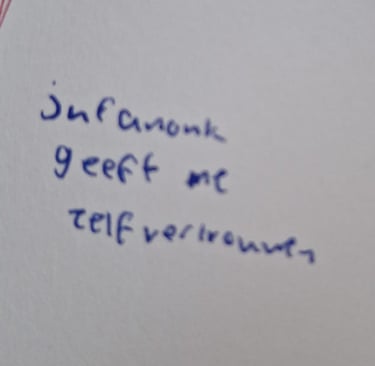 jufanouk
geeft me
zelfvertrouwen